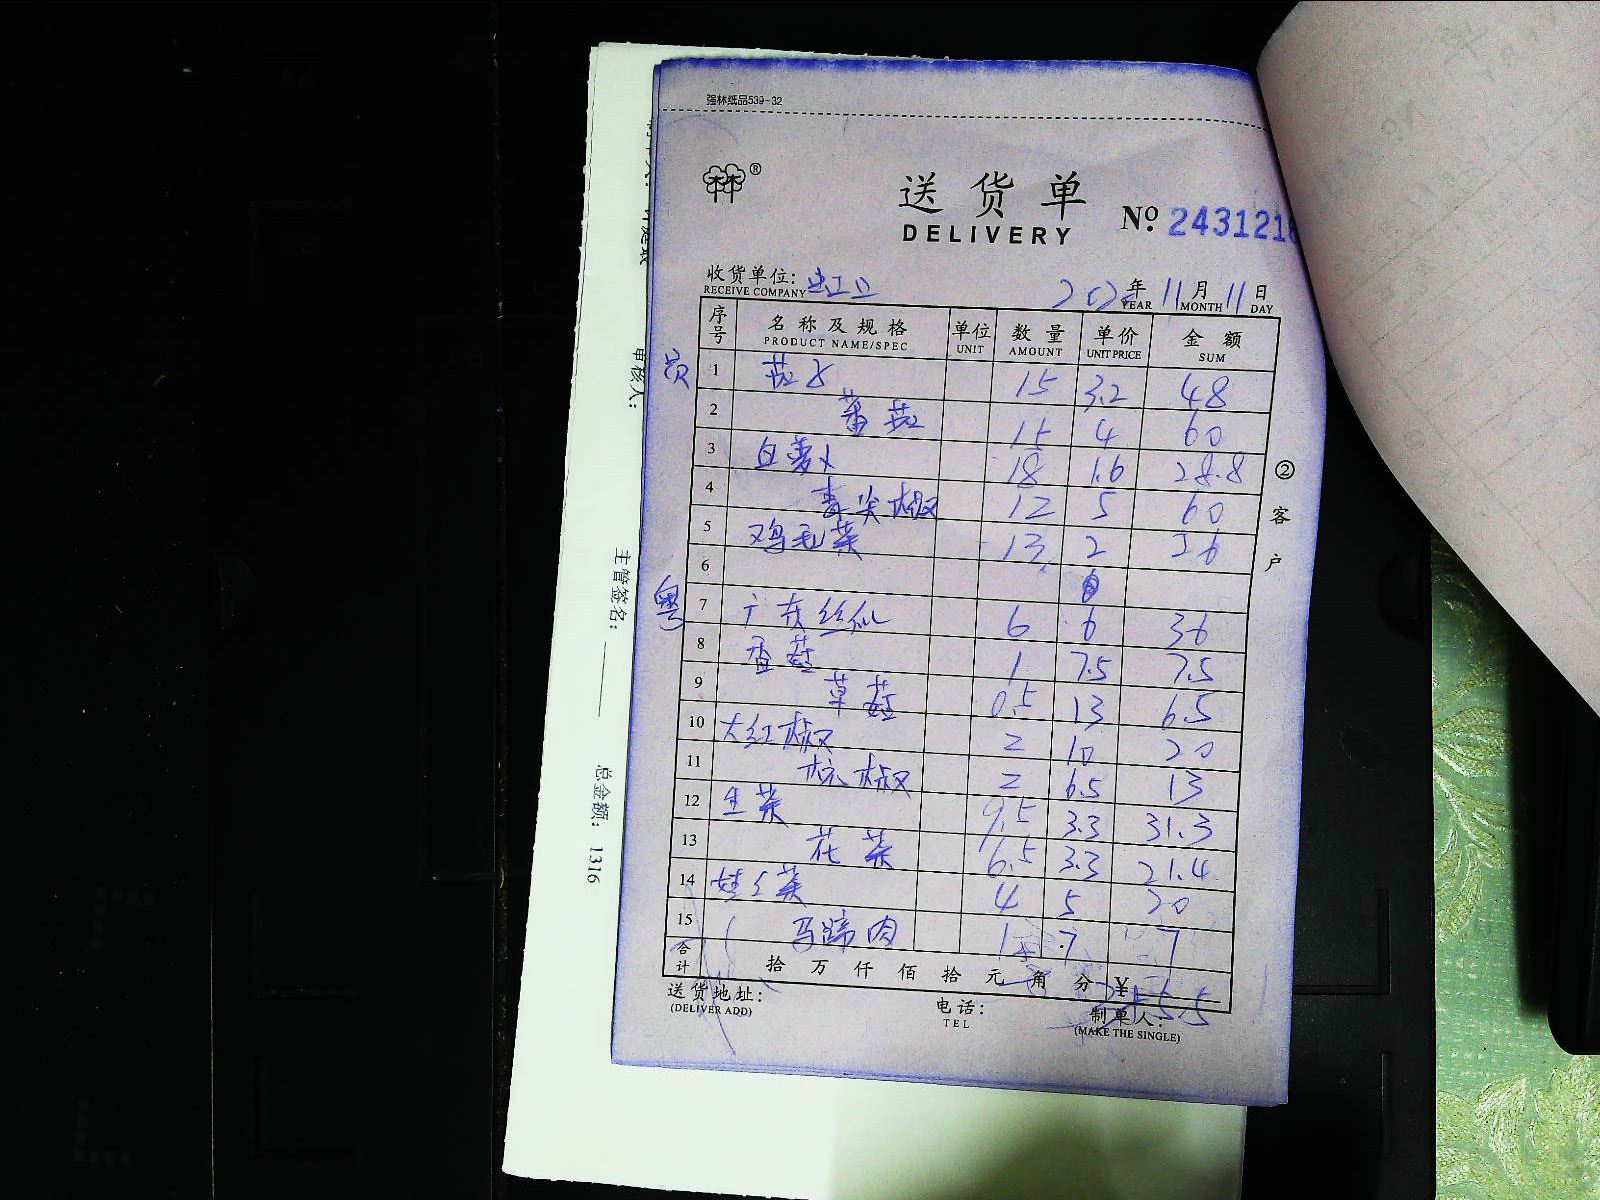 强林纸品539-32
林®
送货单
DELIVERY
No. 243121
收货单位:
RECEIVE COMPANY
年 11月11日
YEAR MONTH DAY
序号 名称及规格 单位 数量 单价 金额
PRODUCT NAME/SPEC UNIT AMOUNT UNIT PRICE SUM
员
1 茄子 15 3.2 48
2 蕃茄 15 4 60
3 白萝卜 18 1.6 28.8
4 青尖椒 12 5 60
5 鸡毛菜 13 2 26
6
粤
7 广东丝瓜 6 6 36
8 香菇 1 7.5 7.5
9 草菇 0.5 13 6.5
10 大红椒 2 10 20
11 杭椒 2 6.5 13
12 生菜 9.5 3.3 31.3
13 花菜 6.5 3.3 21.4
14 娃娃菜 4 5 20
15 马蹄肉 1 7 7
合计 拾万仟佰拾元角分 ¥
送货地址:
(DELIVER ADD)
电话:
TEL
制单人:
(MAKE THE SINGLE)
②客户
审核人:
主管签名:
总金额: 1316